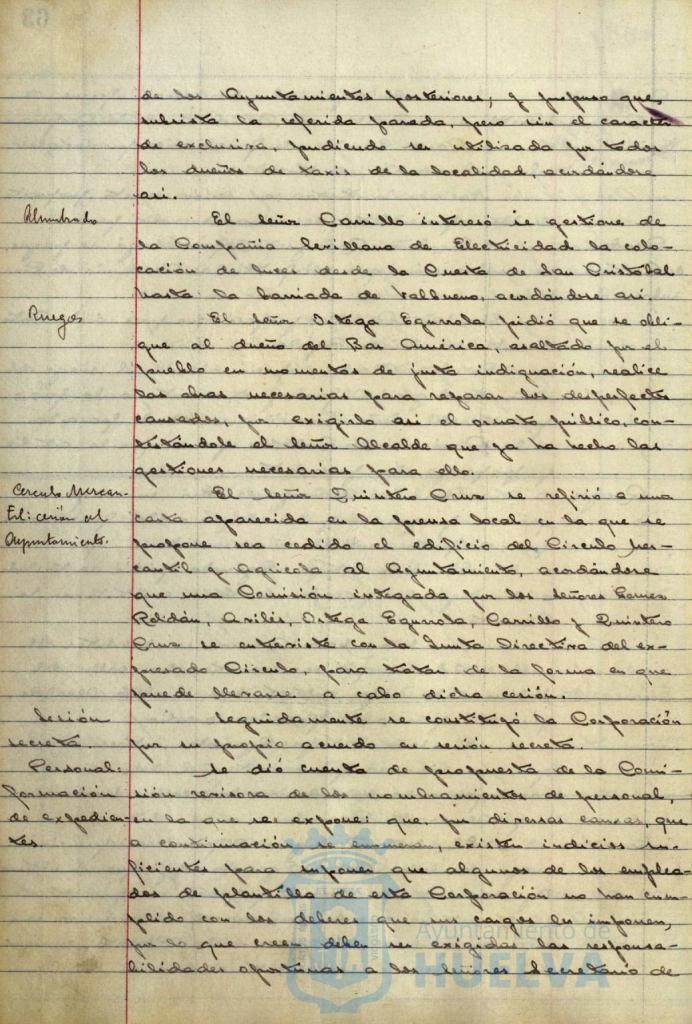 de los Ayuntamientos posteriores, y propuso que
subsista la referida parada, pero sin el caracter
de exclusiva, pudiendo ser utilizada por todos
los dueños de taxis de la localidad, acordándose
así.
Alumbrado
El Señor Carrillo interesó se gestione de
la Compañia Sevillana de Electricidad la colo-
cación de luces desde la Cuesta de San Cristobal
hasta la barriada de Vallueno, acordándose así.
Ruegos
El Señor Ortega Egurrola pidió que se obli-
gue al dueño del Bar América, asaltado por el
pueblo en momentos de justa indignación, realice
las obras necesarias para reparar los desperfectos
causados, por exigirlo así el ornato público, con-
testándole el Señor Alcalde que ya ha hecho las
gestiones necesarias para ello.
Circulo Mercan-
til: cesión al
Ayuntamiento.
El Señor Quintero Cruz se refirió a una
carta aparecida en la prensa local en la que se
propone sea cedido el edificio del Circulo Mer-
cantil y Agricola al Ayuntamiento, acordándose
que una Comisión integrada por los señores Gomez
Roldán, Avilés, Ortega Egurrola, Carrillo y Quintero
Cruz se entreviste con la Junta Directiva del ex-
presado Circulo, para tratar de la forma en que
puede llevarse a cabo dicha cesión.
Sesión
secreta.
Seguidamente se constituyó la Corporación
por su propio acuerdo en sesión secreta.
Personal:
formación
de expedien-
tes.
Se dió cuenta de propuesta de la Comi-
sión revisora de los nombramientos de personal,
en la que se expone: que, por diversas causas, que
a continuación se enumeran, existen indicios su-
ficientes para suponer que algunos de los emplea-
dos de plantilla de esta Corporación no han cum-
plido con los deberes que sus cargos les imponen,
por lo que creen deben ser exigidas las responsa-
bilidades oportunas a los Señores Secretario de
Ayuntamiento de
HUELVA